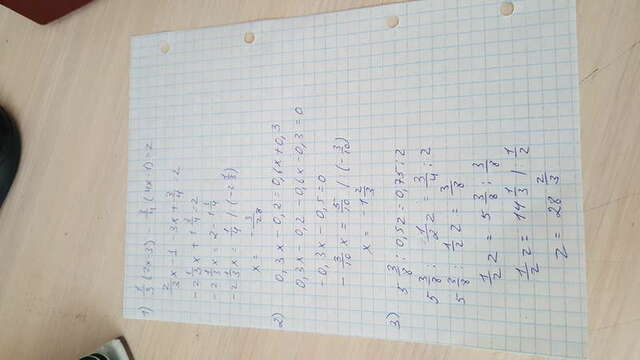 1) 1/3 (2x-3) - 3/4 (4x-1) = 2
2/3x - 1 - 3x + 3/4 = 2
-2 1/3 x + 1 3/4 = 2
-2 1/3 x = 2 - 1 3/4
-2 1/3 x = 1/4 | (-2 1/3)
x = -3/28
2) 0,3x - 0,2 = 0,6x + 0,3
0,3x - 0,2 - 0,6x - 0,3 = 0
-0,3x - 0,5 = 0
-3/10 x = 5/10 | (-3/10)
x = -1 2/3
3) 5 3/8 : 0,5z = 0,75 : 2
5 3/8 : 1/2 z = 3/4 : 2
5 3/8 : 1/2 z = 3/8
1/2 z = 5 3/8 : 3/8
1/2 z = 14 1/3 | 1/2
z = 28 2/3